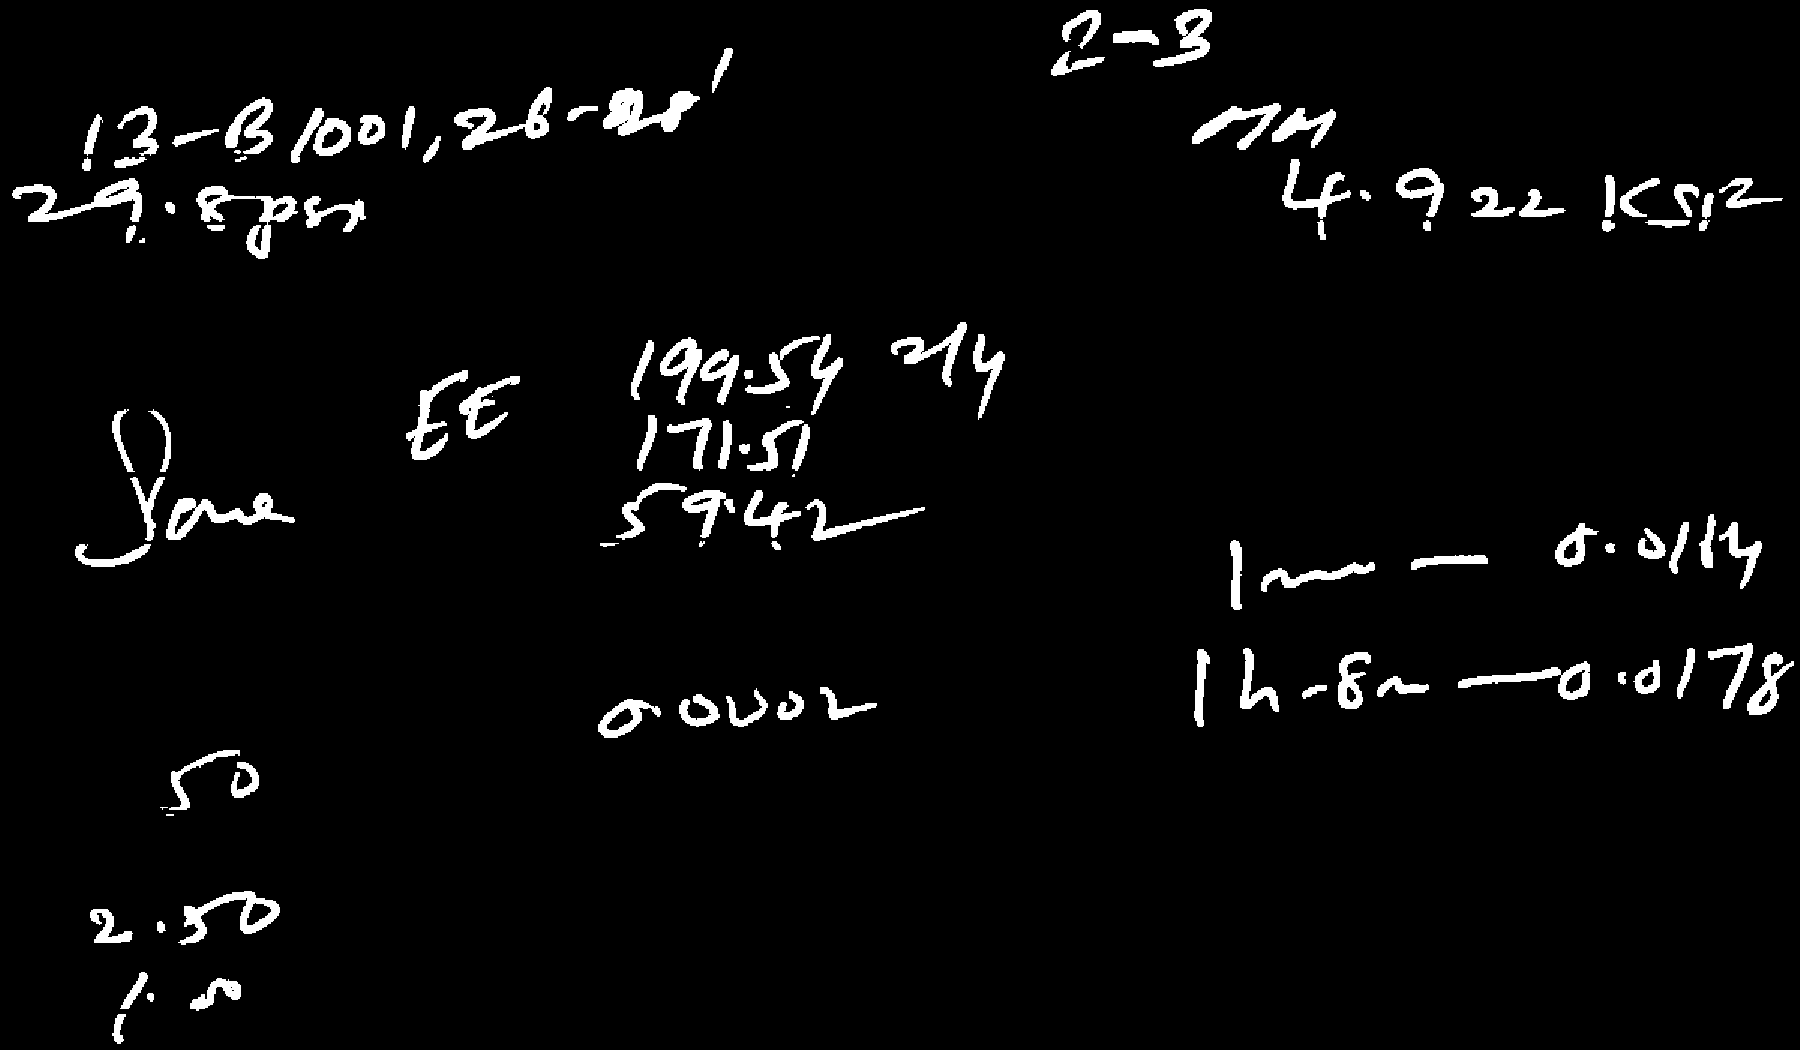 2-3
13-B1001, 26-28'
29.8psi
4.922 KSi2
EE 199.54 2/4
171.51
59.42
1m — 0.0114
1h-8m — 0.0178
0.0002
50
2.50
1.50